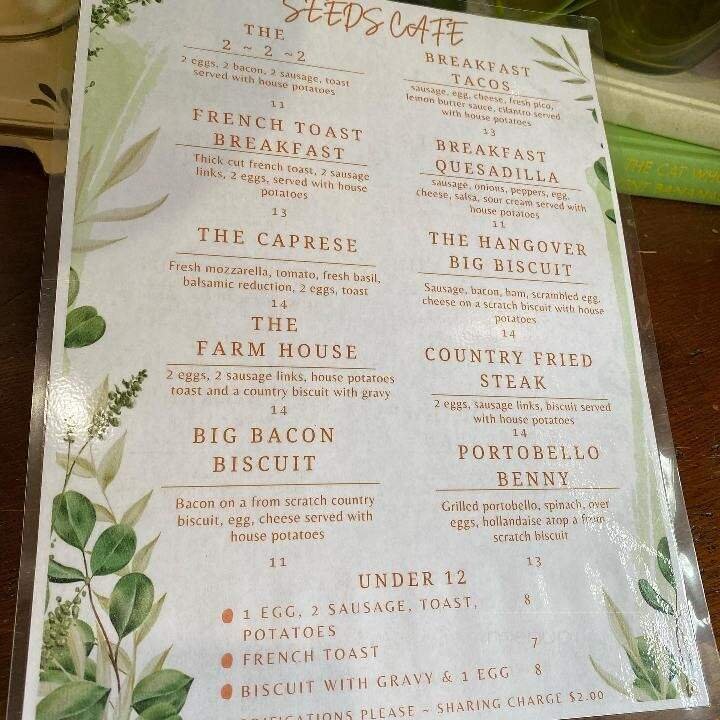 SEEDS CAFE
THE
2 ~ 2 ~2
2 eggs, 2 bacon, 2 sausage, toast
served with house potatoes
11
FRENCH TOAST
BREAKFAST
Thick cut french toast, 2 sausage
links, 2 eggs, served with house
potatoes
13
THE CAPRESE
Fresh mozzarella, tomato, fresh basil,
balsamic reduction, 2 eggs, toast
14
THE
FARM HOUSE
2 eggs, 2 sausage links, house potatoes
toast and a country biscuit with gravy
14
BIG BACON
BISCUIT
Bacon on a from scratch country
biscuit, egg, cheese served with
house potatoes
11
BREAKFAST
TACOS
sausage, egg, cheese, fresh pico,
lemon butter sauce, cilantro served
with house potatoes
13
BREAKFAST
QUESADILLA
sausage, onions, peppers, egg,
cheese, salsa, sour cream served with
house potatoes
11
THE HANGOVER
BIG BISCUIT
Sausage, bacon, ham, scrambled egg,
cheese on a scratch biscuit with house
potatoes
14
COUNTRY FRIED
STEAK
2 eggs, sausage links, biscuit served
with house potatoes
14
PORTOBELLO
BENNY
Grilled portobello, spinach, over
eggs, hollandaise atop a from
scratch biscuit
13
UNDER 12
1 EGG, 2 SAUSAGE, TOAST, 8
POTATOES
FRENCH TOAST 7
BISCUIT WITH GRAVY & 1 EGG 8
PLEASE ~ SHARING CHARGE $2.00
THE CAT